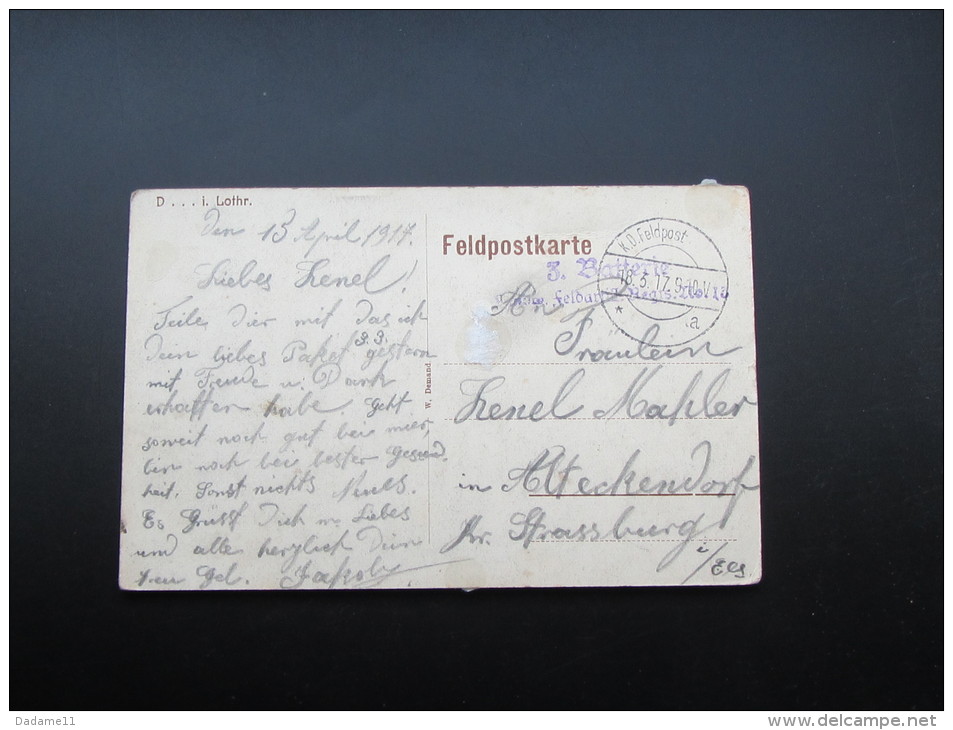 D . . . i. Lothr.
den 13 April 1917.
Liebes Lenel!
Teile dir mit das ich
dein liebes Paket gestern
mit Freude u. Dank
erhalten habe. Geht
soweit noch gut bei mier,
bin noch bei bester Gesund-
heit. Sonst nichts Neues.
Es Grüsst Dich m. Liebes
und alle herzlich Dein
treu Gel. Jakoby
W. Demand
Feldpostkarte
3. Batterie
K.D. Feldpost
a
An
Fraulein
Lenel Mahler
in Alteckendorf
Kr. Strassburg
i/Els
Dadame11
www.delcampe.net